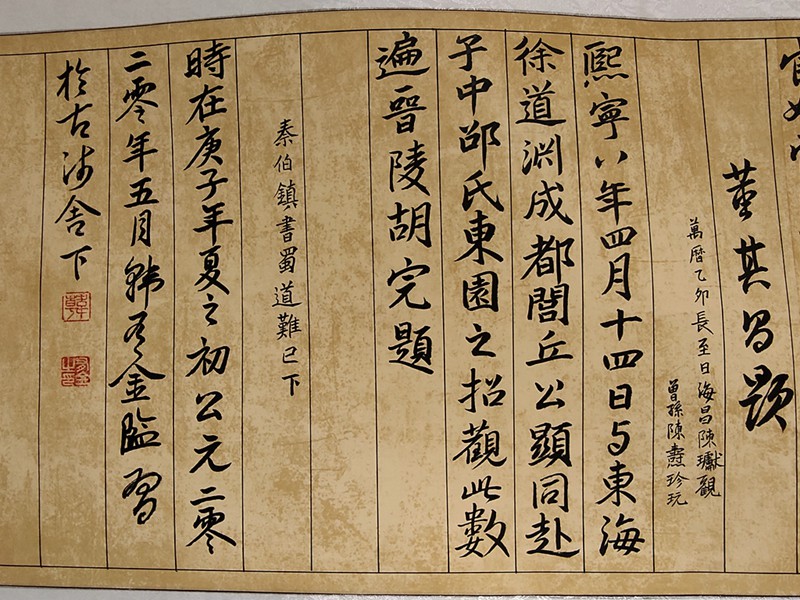 董其昌題
萬曆乙卯長至日海昌陳瓛觀
曾孫陳燾珍玩
熙寧八年四月十四日与東海
徐道渊成都閭丘公顯同赴
子中邵氏東園之招觀此數
遍晉陵胡完題
秦伯鎮書蜀道難已下
時在庚子年夏之初公元二零
二零年五月韩有金臨習
於古涉舍下